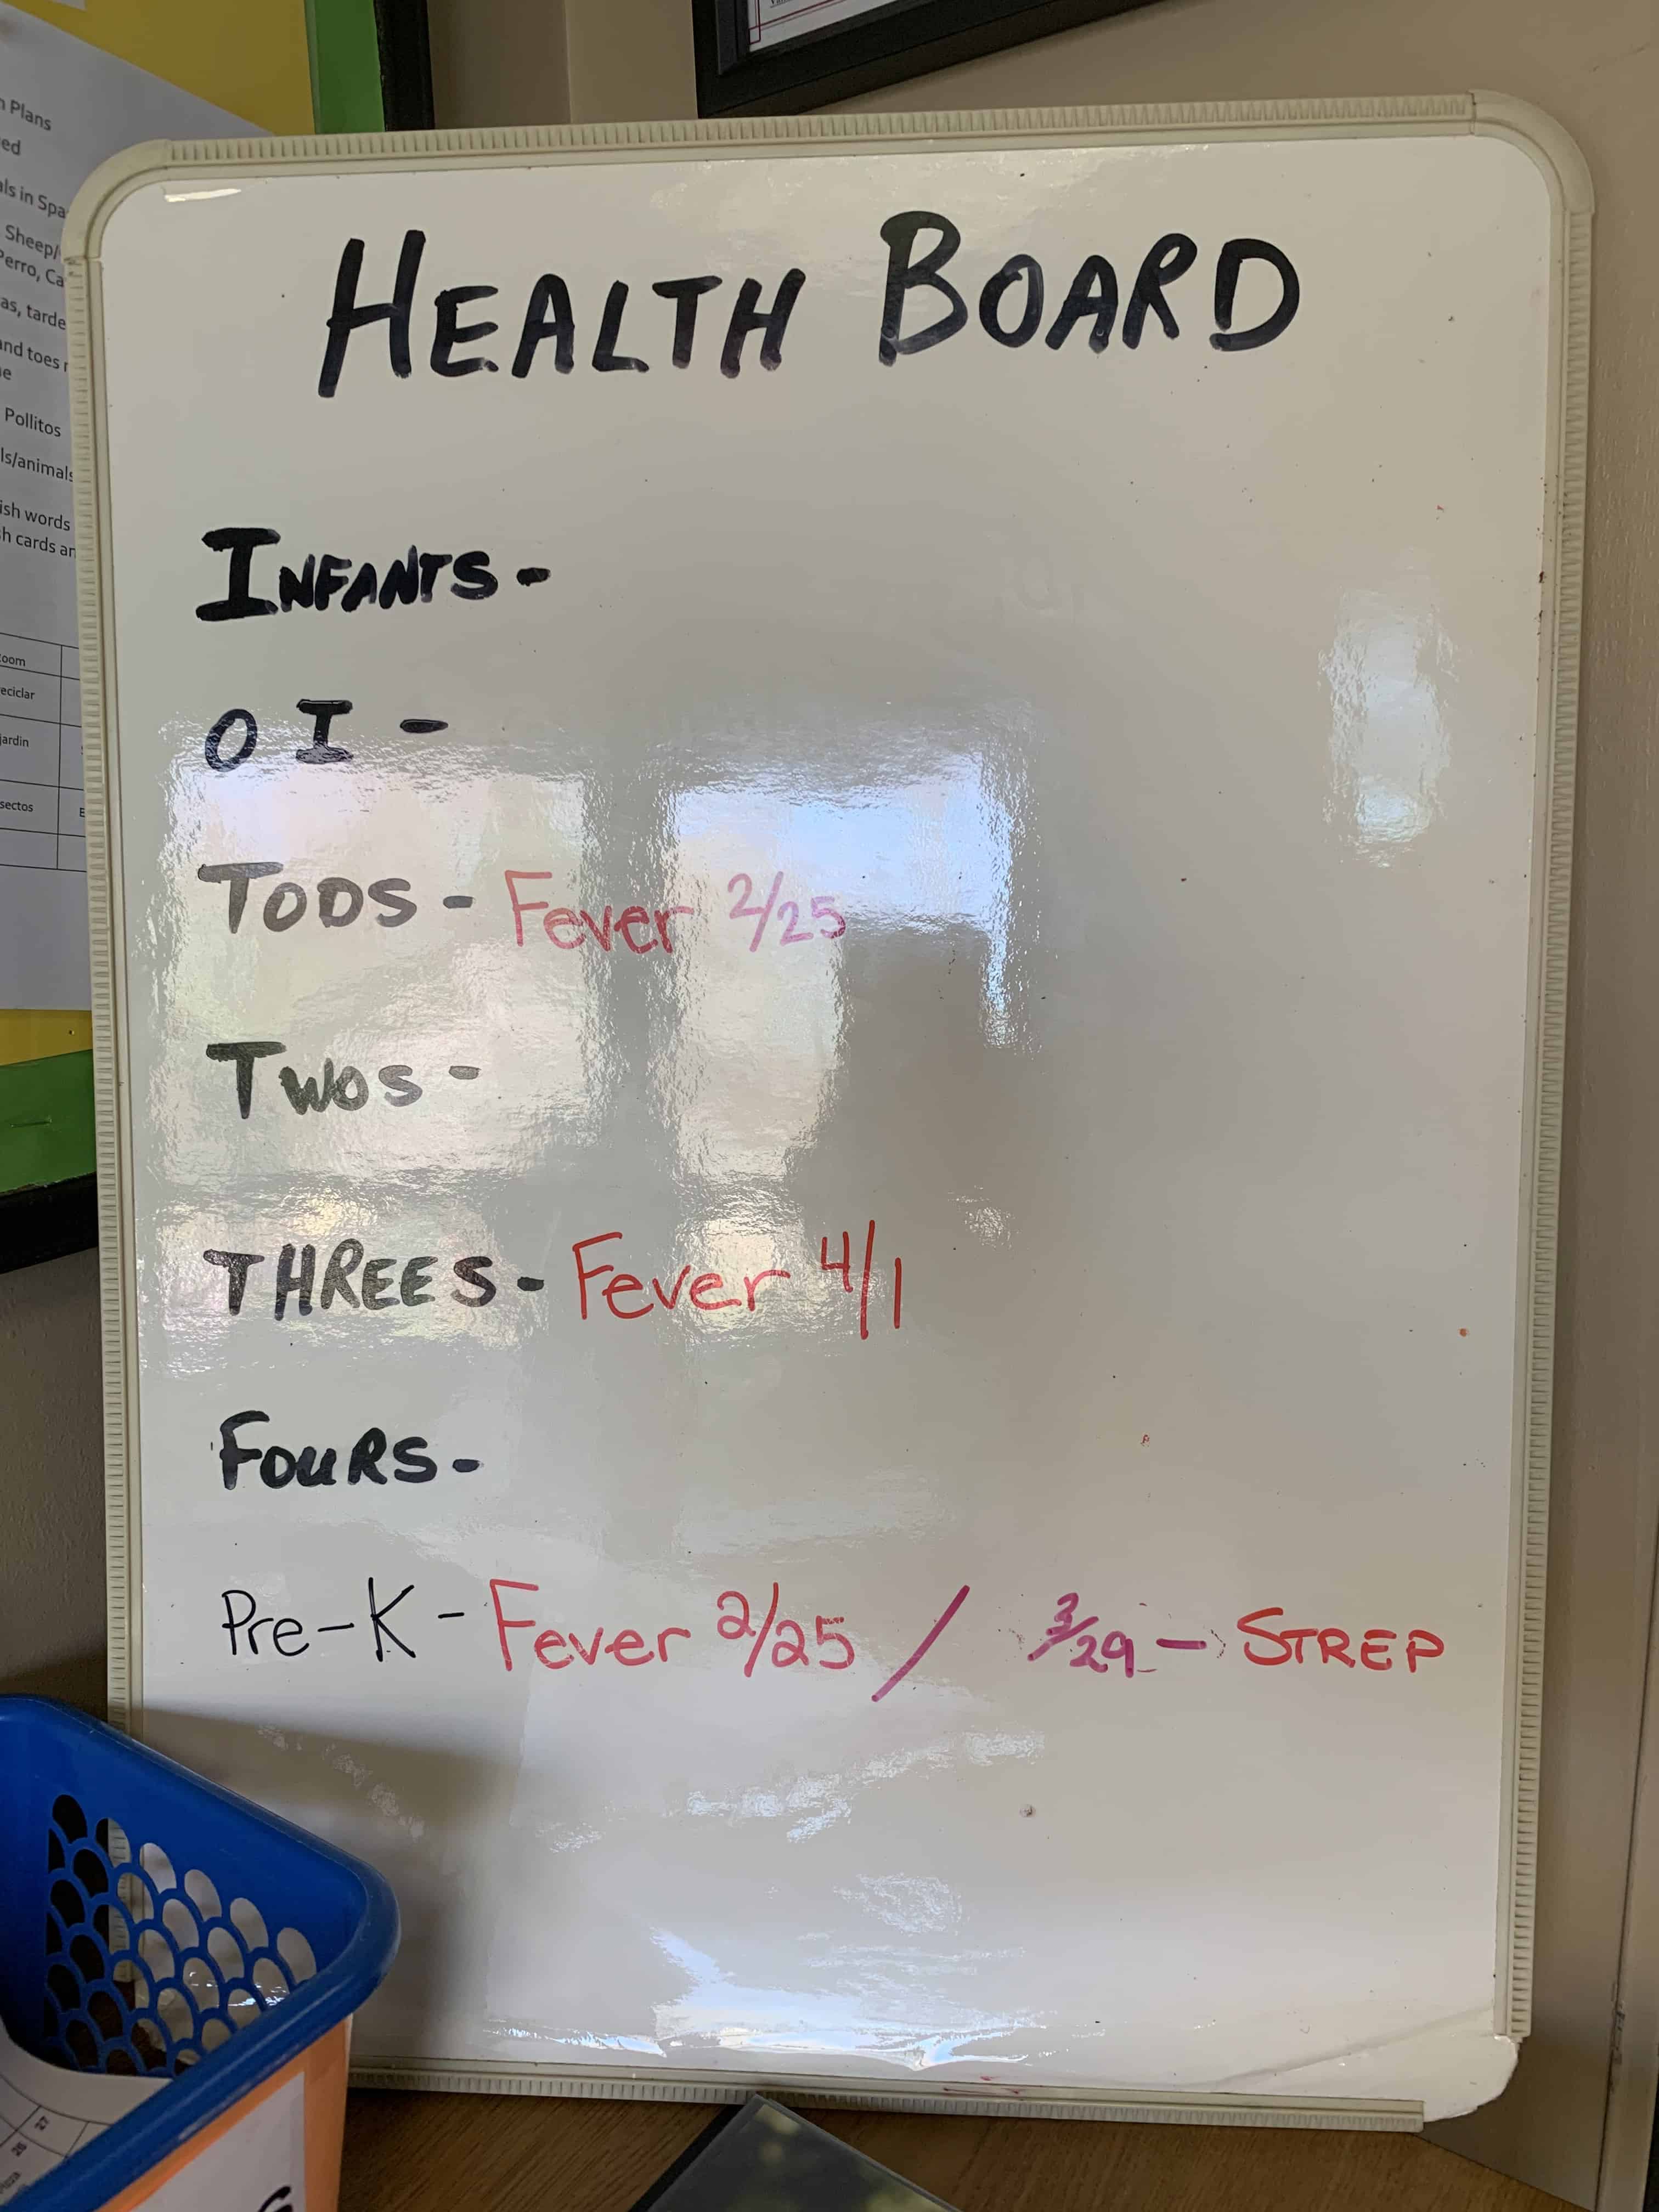 Plans
ed
ls in Spa
Sheep/
Perro, Ca
as, tarde
and toes
e
Pollitos
ls/animals
ish words
h cards an
oom
eciclar
jardin
sectos
E
HEALTH BOARD
INFANTS-
O I -
TODS - Fever 2/25
TWOS -
THREES - Fever 4/1
FOURS -
Pre-K - Fever 2/25 / 3/29 - STREP
27
26